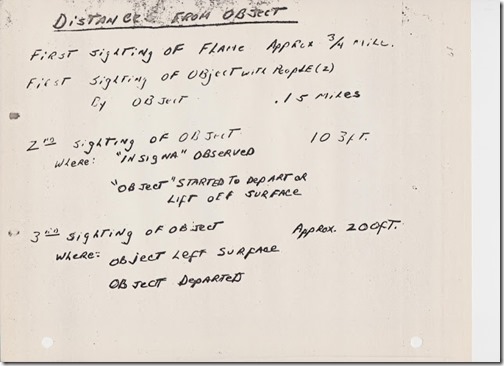 DISTANCE FROM OBJECT
FIRST SIGHTING OF FLAME APPROX 3/4 MILE.
FIRST SIGHTING OF OBJECT WITH PEOPLE (2)
BY OBJECT .15 MILES
2ND SIGHTING OF OBJECT 103 FT.
WHERE: "INSIGNA" OBSERVED
"OBJECT" STARTED TO DEPART OR
LIFT OFF SURFACE
3RD SIGHTING OF OBJECT APPROX. 200 FT.
WHERE: OBJECT LEFT SURFACE
OBJECT DEPARTED